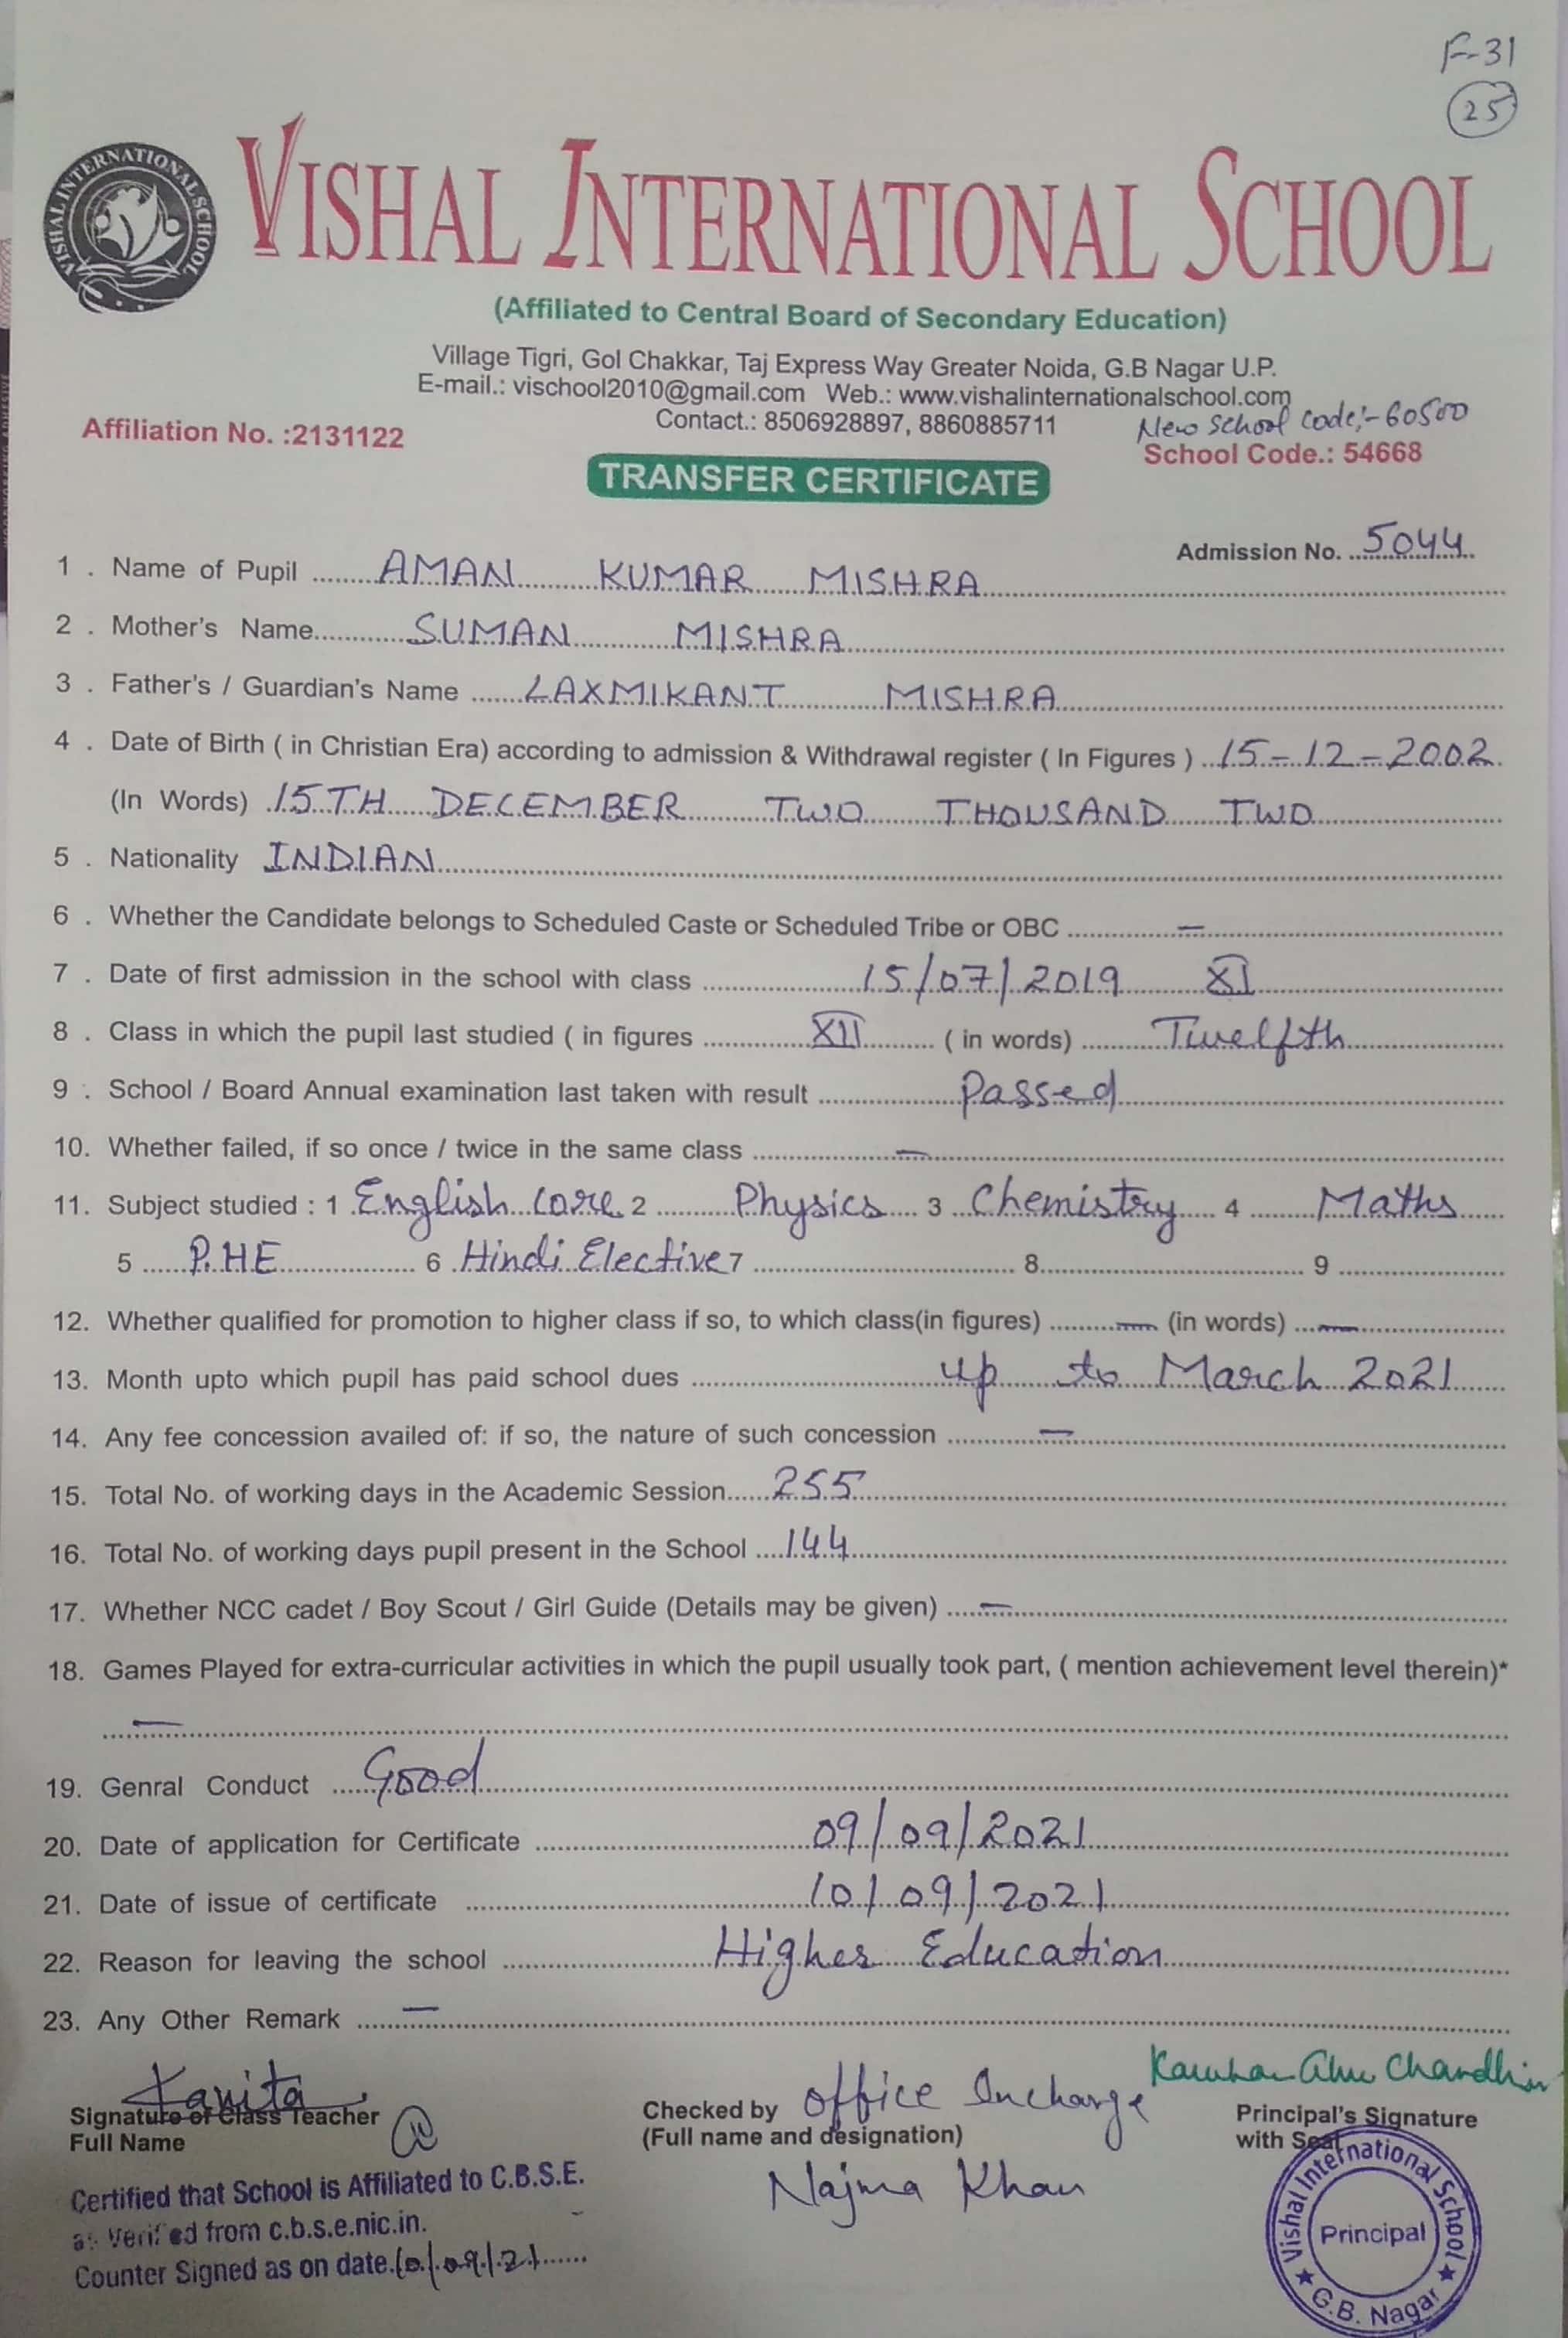 F-31
25
VISHAL INTERNATIONAL SCHOOL
VISHAL INTERNATIONAL SCHOOL
(Affiliated to Central Board of Secondary Education)
Village Tigri, Gol Chakkar, Taj Express Way Greater Noida, G.B Nagar U.P.
E-mail.: vischool2010@gmail.com Web.: www.vishalinternationalschool.com
Contact.: 8506928897, 8860885711
New School Code:- 60500
Affiliation No. :2131122
School Code.: 54668
TRANSFER CERTIFICATE
Admission No. 5044
1 . Name of Pupil AMAN KUMAR MISHRA
2 . Mother's Name SUMAN MISHRA
3 . Father's / Guardian's Name LAXMIKANT MISHRA
4 . Date of Birth ( in Christian Era) according to admission & Withdrawal register ( In Figures ) 15-12-2002
(In Words) 15TH DECEMBER TWO THOUSAND TWO
5 . Nationality INDIAN
6 . Whether the Candidate belongs to Scheduled Caste or Scheduled Tribe or OBC —
7 . Date of first admission in the school with class 15/07/2019 XI
8 . Class in which the pupil last studied ( in figures XII ( in words) Twelfth
9 . School / Board Annual examination last taken with result Passed
10. Whether failed, if so once / twice in the same class —
11. Subject studied : 1 English Core 2 Physics 3 Chemistry 4 Maths
5 P.HE 6 Hindi Elective 7 8 9
12. Whether qualified for promotion to higher class if so, to which class(in figures) — (in words) —
13. Month upto which pupil has paid school dues up to March 2021
14. Any fee concession availed of: if so, the nature of such concession —
15. Total No. of working days in the Academic Session 255
16. Total No. of working days pupil present in the School 144
17. Whether NCC cadet / Boy Scout / Girl Guide (Details may be given) —
18. Games Played for extra-curricular activities in which the pupil usually took part, ( mention achievement level therein)*
—
19. Genral Conduct Good
20. Date of application for Certificate 09/09/2021
21. Date of issue of certificate 10/09/2021
22. Reason for leaving the school Higher Education
23. Any Other Remark —
Kavita
Signature of Class Teacher
Full Name
Checked by office Incharge
(Full name and designation)
Najma Khan
Principal's Signature
with Seal
Certified that School is Affiliated to C.B.S.E.
as Verified from c.b.s.e.nic.in.
Counter Signed as on date 10/09/21
Vishal International School
Principal
G.B. Nagar